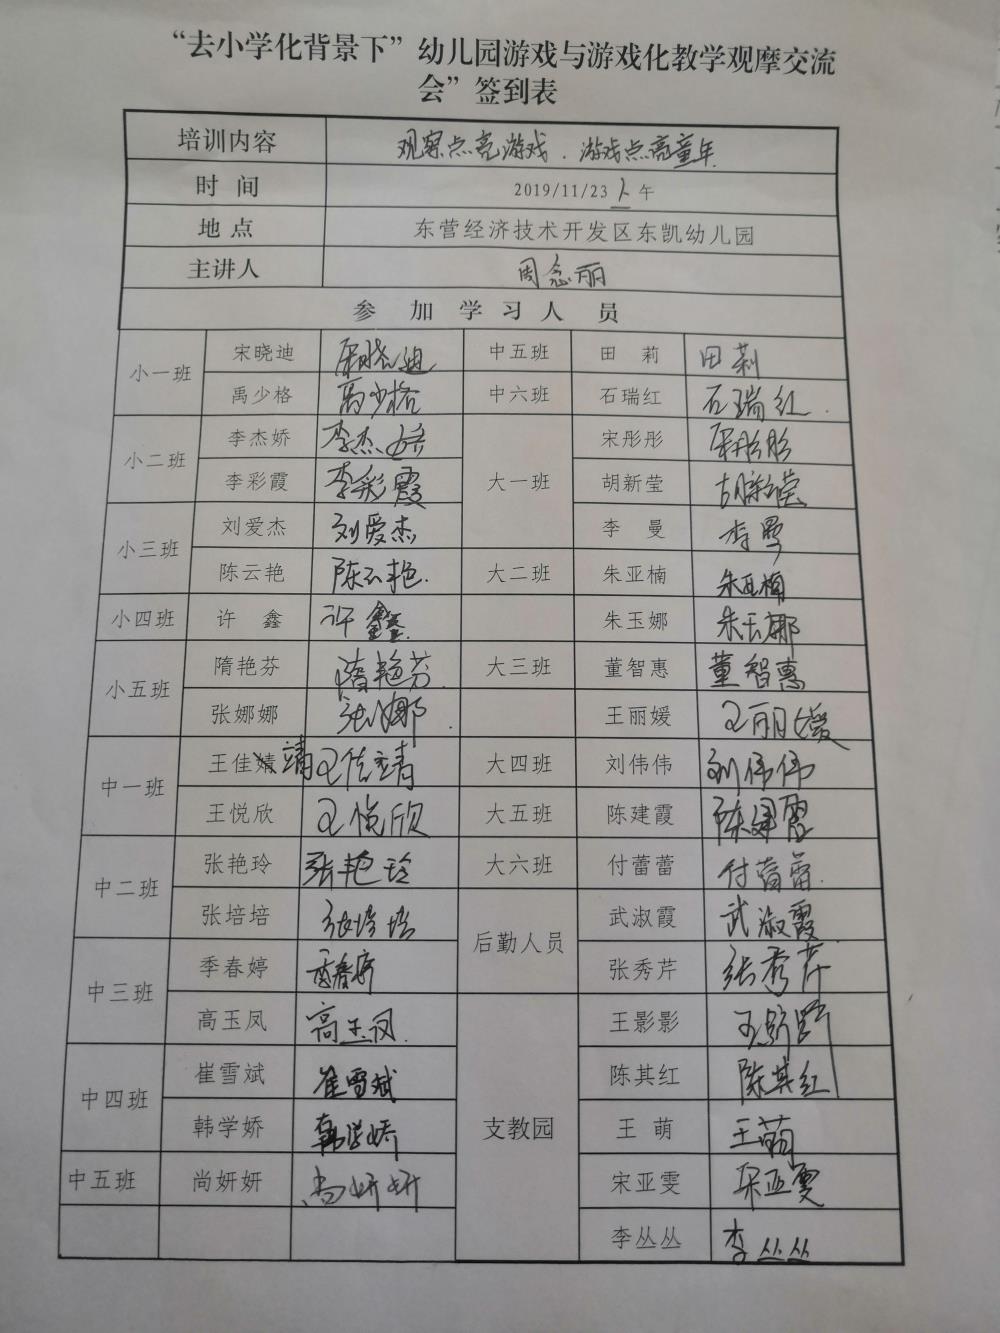 “去小学化背景下”幼儿园游戏与游戏化教学观摩交流
会”签到表
培训内容 观察点亮游戏.游戏点亮童年
时 间 2019/11/23 上午
地 点 东营经济技术开发区东凯幼儿园
主讲人 周念丽
参 加 学 习 人 员
小一班 宋晓迪 宋晓迪 中五班 田 莉 田莉
禹少格 禹少格 中六班 石瑞红 石瑞红.
小二班 李杰娇 李杰娇 大一班 宋彤彤 宋彤彤
李彩霞 李彩霞 胡新莹 胡新莹
小三班 刘爱杰 刘爱杰 李 曼 李曼
陈云艳 陈云艳. 大二班 朱亚楠 朱亚楠
小四班 许 鑫 许鑫. 朱玉娜 朱玉娜
小五班 隋艳芬 隋艳芬. 大三班 董智惠 董智惠
张娜娜 张娜 王丽媛 王丽媛
中一班 王佳婧 靖 王佳靖 大四班 刘伟伟 刘伟伟
王悦欣 王悦欣 大五班 陈建霞 陈建霞
中二班 张艳玲 张艳玲 大六班 付蕾蕾 付蕾蕾.
张培培 张培培 后勤人员 武淑霞 武淑霞
中三班 季春婷 季春婷 张秀芹 张秀芹
高玉凤 高玉凤. 支教园 王影影 王影影
中四班 崔雪斌 崔雪斌 陈其红 陈其红
韩学娇 韩学娇 王 萌 王萌
中五班 尚妍妍 尚妍妍 宋亚雯 宋亚雯
李丛丛 李丛丛